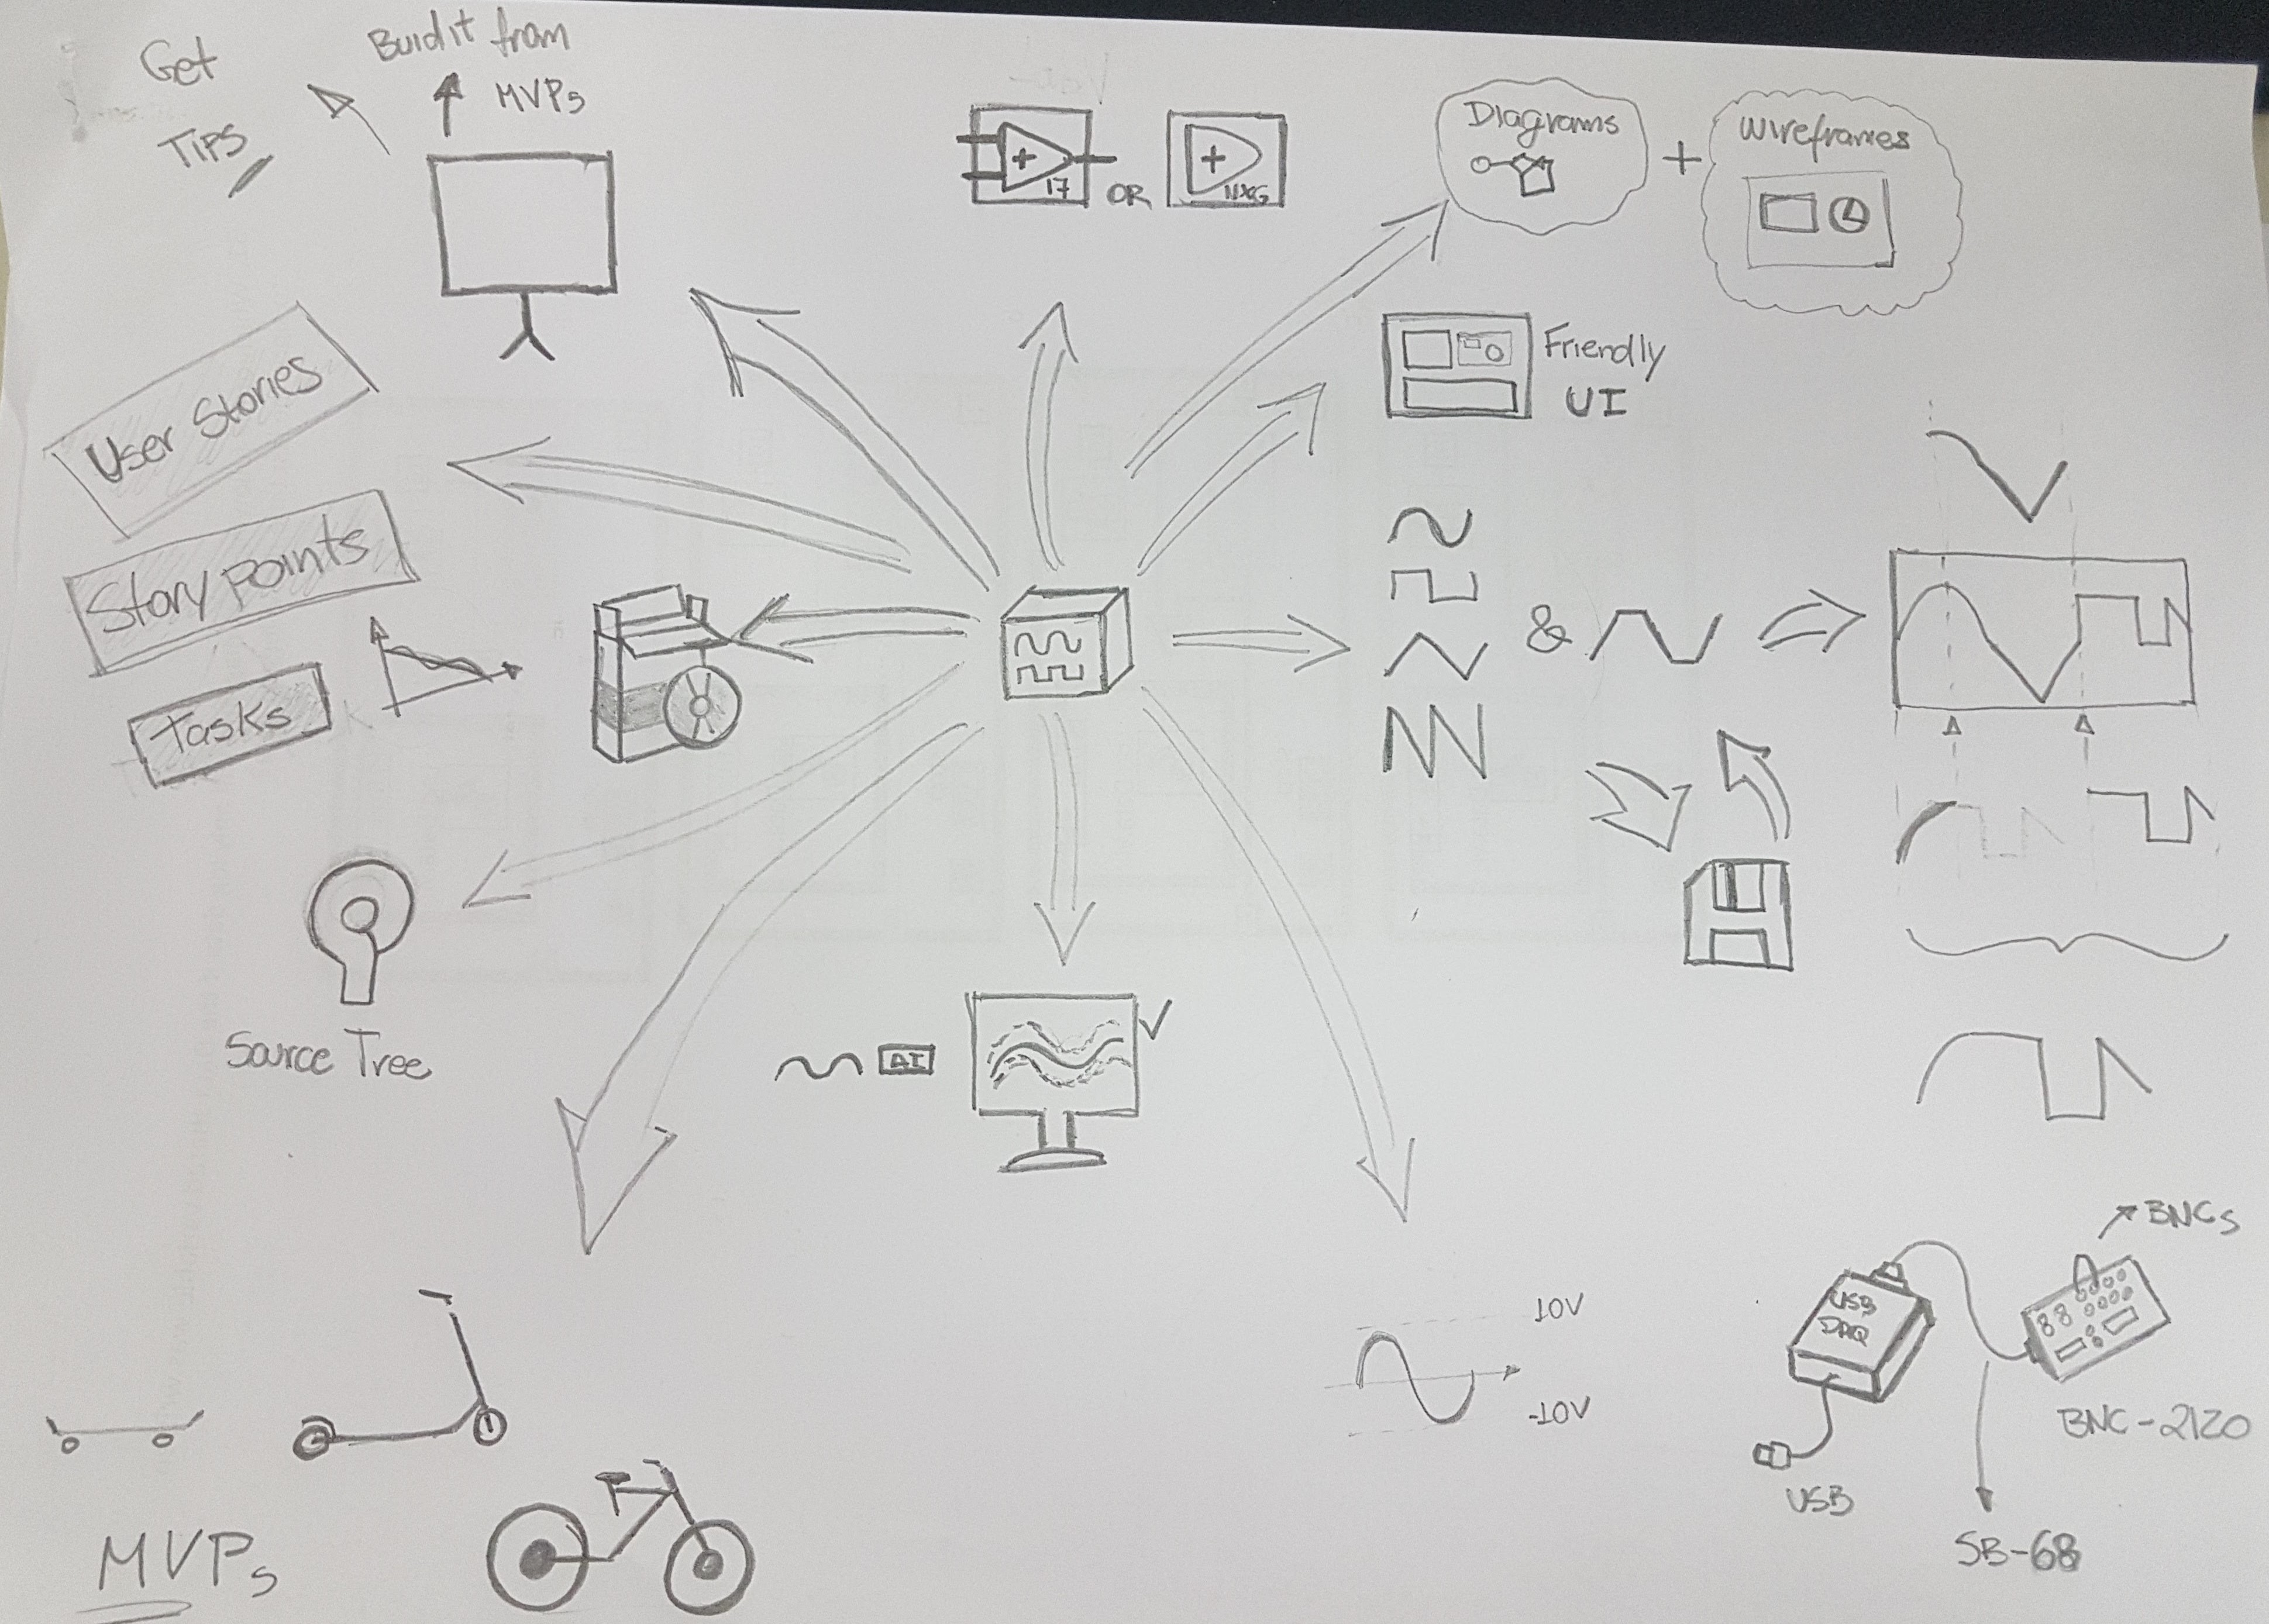 Get
TIPS
Buid it from
MVPs
17
OR
NXG
Diagrams
+
Wireframes
Friendly
UI
User Stories
Story points
Tasks
&
Source Tree
AI
10V
-10V
USB
DAQ
BNCs
BNC-2120
USB
SB-68
MVPs